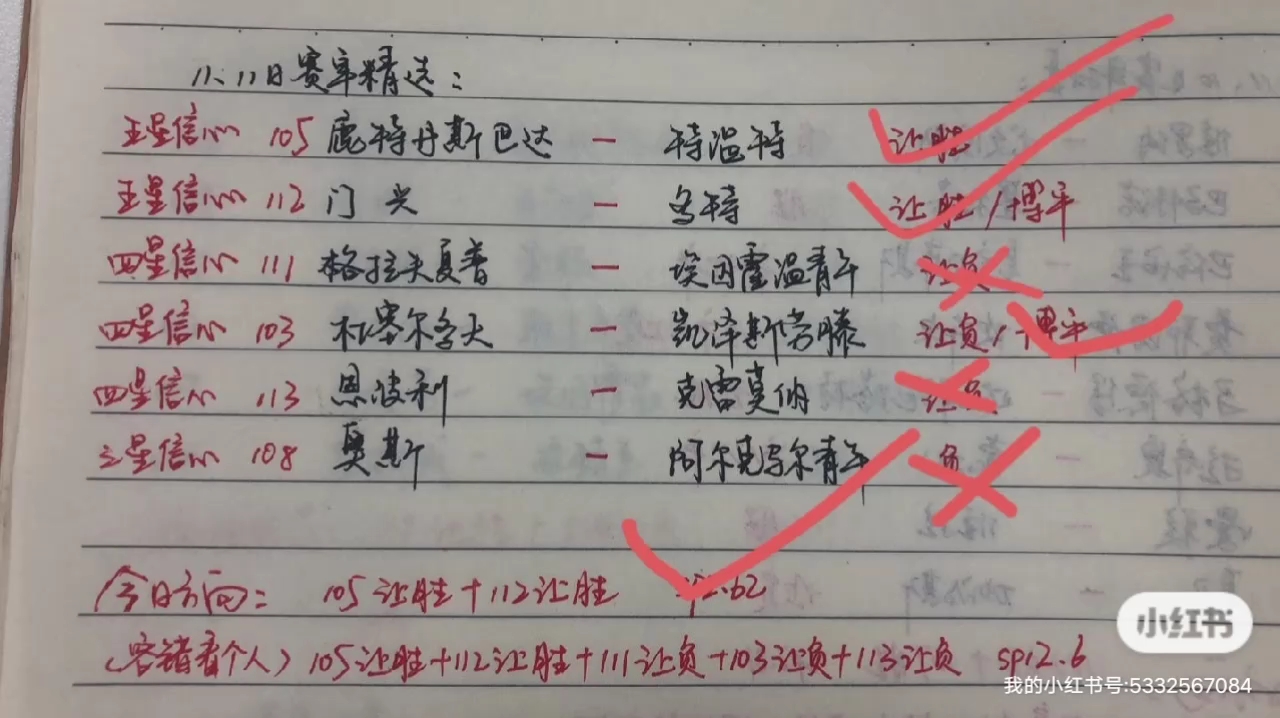 11、11日赛事精选：
五星信心 105 鹿特丹斯巴达 — 特温特 让胜
五星信心 112 门兴 — 多特 让胜/博平
四星信心 111 格拉夫夏普 — 埃因霍温青年 让负
四星信心 103 杜塞尔多夫 — 凯泽斯劳滕 让负/博平
四星信心 113 恩波利 — 克雷莫纳 让负
三星信心 108 奥斯 — 阿尔克马尔青年 负
今日方向： 105让胜+112让胜 sp2.62
(容错看个人) 105让胜+112让胜+111让负+103让负+113让负 sp12.6
小红书
我的小红书号:5332567084